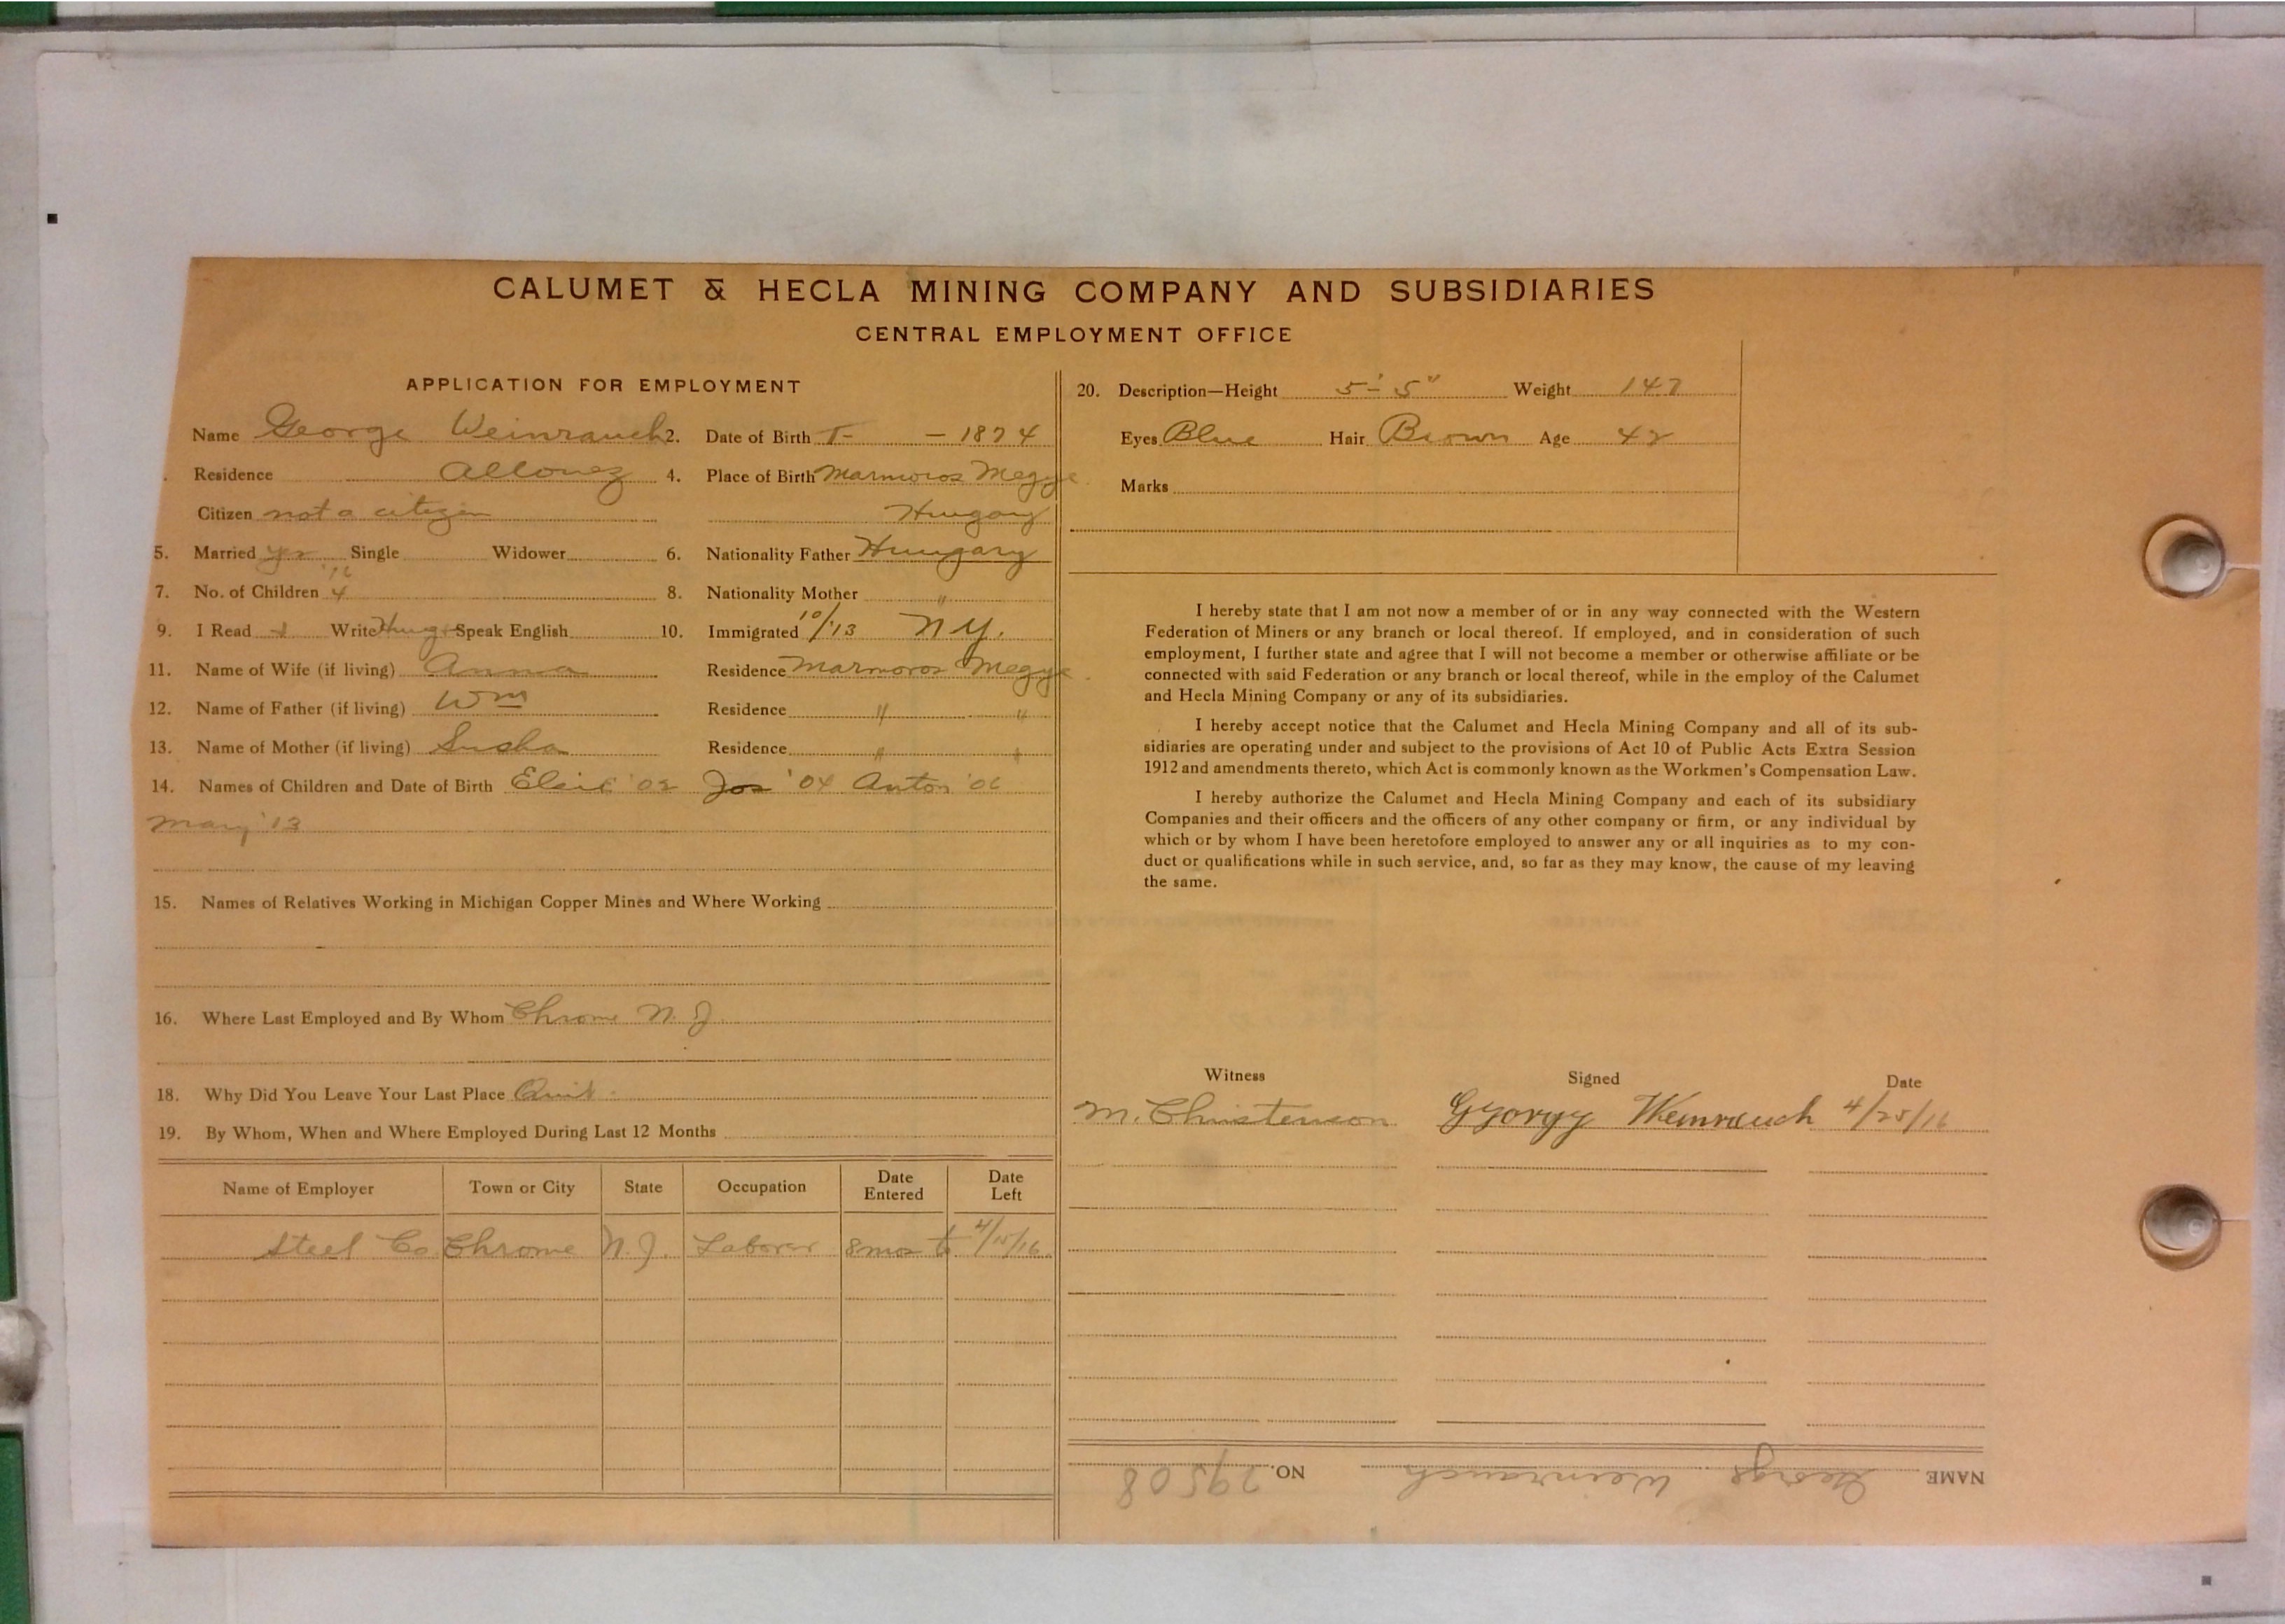 CALUMET & HECLA MINING COMPANY AND SUBSIDIARIES
CENTRAL EMPLOYMENT OFFICE
APPLICATION FOR EMPLOYMENT
Name George Weinrauch 2. Date of Birth - 1874
Residence Allouez 4. Place of Birth Marmoros Megye
Citizen not a citizen Hungary
5. Married yes Single Widower 6. Nationality Father Hungary
'16
7. No. of Children 4 8. Nationality Mother "
9. I Read & Write Hung Speak English 10. Immigrated 10/'13 N.Y.
11. Name of Wife (if living) Anna Residence Marmoros Megye
12. Name of Father (if living) Wm Residence " "
13. Name of Mother (if living) Susha Residence " "
14. Names of Children and Date of Birth '02 Jos '04 Anton '06
Mary '13
15. Names of Relatives Working in Michigan Copper Mines and Where Working
16. Where Last Employed and By Whom Chrome N. J.
18. Why Did You Leave Your Last Place Quit
19. By Whom, When and Where Employed During Last 12 Months
Name of Employer Town or City State Occupation Date Entered Date Left
Steel Co Chrome N. J. Laborer 8 mos to 4/15/16
20. Description—Height 5'- 5" Weight 147
Eyes Blue Hair Brown Age 42
Marks
I hereby state that I am not now a member of or in any way connected with the Western
Federation of Miners or any branch or local thereof. If employed, and in consideration of such
employment, I further state and agree that I will not become a member or otherwise affiliate or be
connected with said Federation or any branch or local thereof, while in the employ of the Calumet
and Hecla Mining Company or any of its subsidiaries.
I hereby accept notice that the Calumet and Hecla Mining Company and all of its sub-
sidiaries are operating under and subject to the provisions of Act 10 of Public Acts Extra Session
1912 and amendments thereto, which Act is commonly known as the Workmen's Compensation Law.
I hereby authorize the Calumet and Hecla Mining Company and each of its subsidiary
Companies and their officers and the officers of any other company or firm, or any individual by
which or by whom I have been heretofore employed to answer any or all inquiries as to my con-
duct or qualifications while in such service, and, so far as they may know, the cause of my leaving
the same.
Witness Signed Date
M. Christenson Gyorgy Weinrauch 4/25/16
NAME George Weinrauch NO. 29508